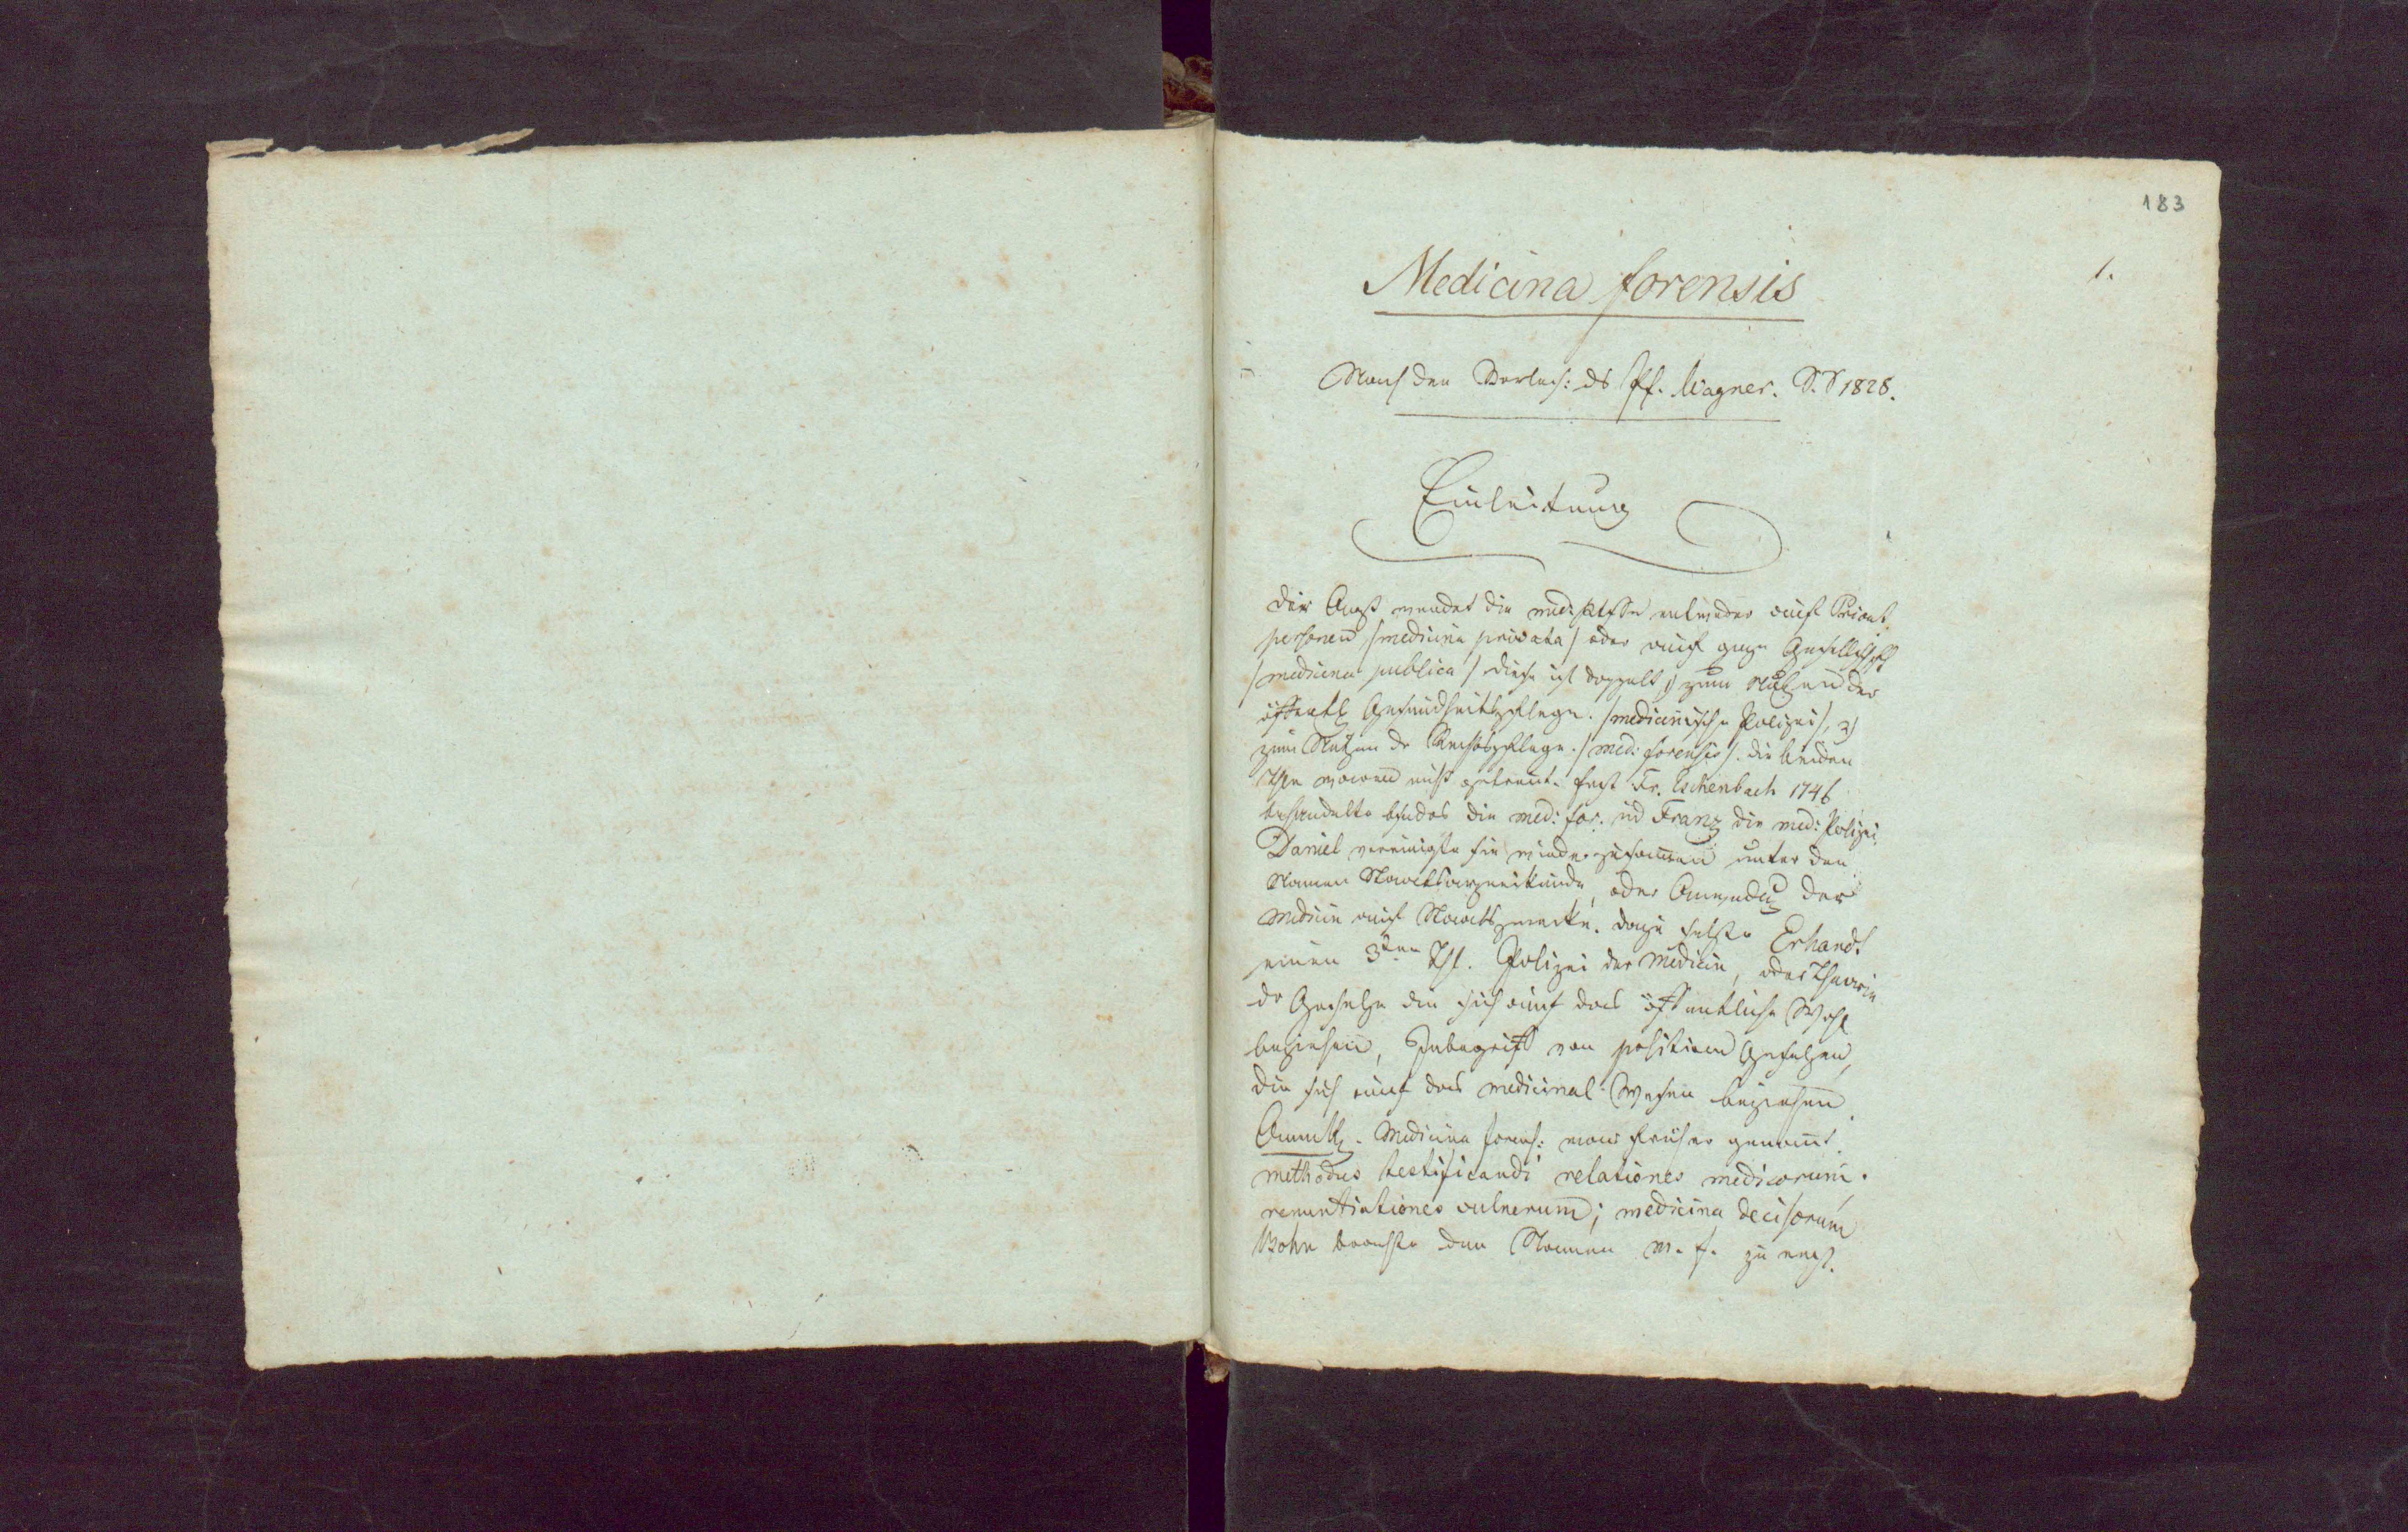 183
1.
Medicina forensis
Nach den Vorles: ds Pf. Wagner. S.S 1828.
Einleitung
Der Arzt wendet die med: entweder auf Privat
personen /medicina privata/ oder auf ganze Gesellschft
/medicina publica/ diese ist doppelt 1) zum Nutzen der
öffentl Gesundheitspflege. /medicinische Polizei/, 2)
zum Nutzen dr Rechtspflege. /med: forensis/. die beiden
Thle waren nicht getrennt. Erst Fr. Eschenbach 1746
behandelte bsnders die med: for. ud Franz die med: Polizei.
Daniel vereinigte sie wieder zusammen unter den
Namen Staatsarzneikunde, oder Anwendg der
Medicin auf Staatszwecke. dazu setzte Erhardt
einen 3ten Thl. Polizei der Medicin, oder Theorie
dr Gesetze die sich auf das öffentliche Wohl
beziehen, Inbegriff von positiven Gesetzen,
die sich auf das medicinal-Wesen beziehen.
Anmkg. Medicina forens: war früher genannt.
methodus testificandi relationes medicorum.
renuntiationes vulnerum; medicina decisorum
Bohn brachte den Namen m. f. zu erst.